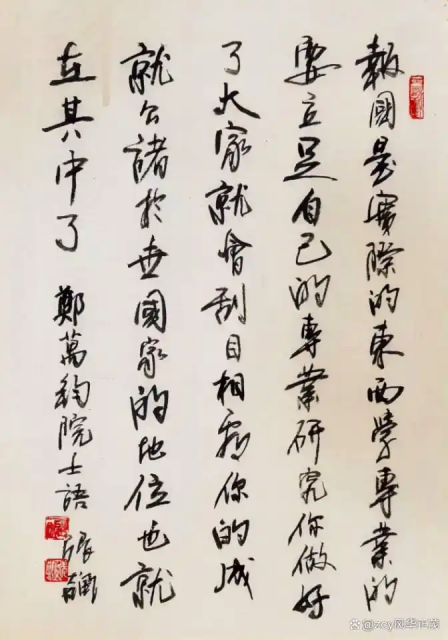 報國是實際的東西學專業的
要立足自己的專業研究你做好
了大家就會刮目相看你的成
就公諸於世國家的地位也就
在其中了
鄭萬鈞院士語
張
@zcy风华正茂